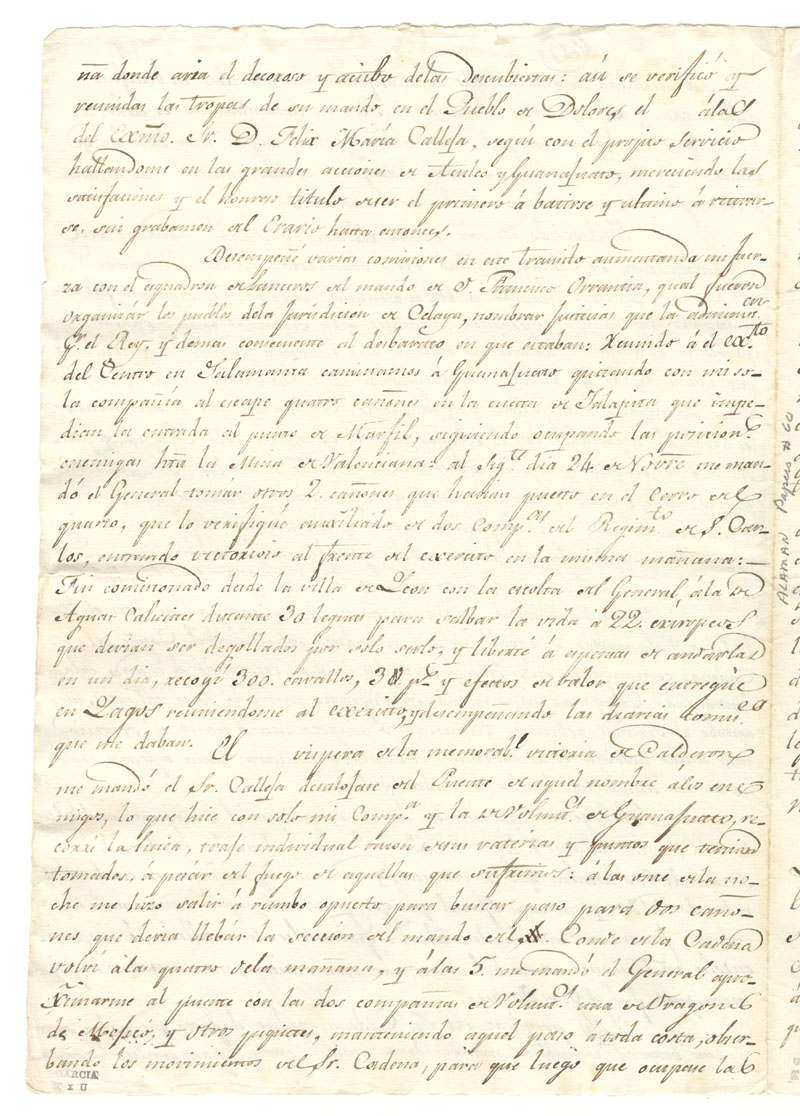 ña donde aria el decoroso y activo de las Descubiertas: así se verificó y
reunidas las tropas de su mando en el Pueblo de Dolores el álas
del Exmo. Sr. D. Felix María Calleja, seguí con el propio servicio
hallandome en las grandes acciones de Aculco y Guanajuato, mereciendo las
satisfaciones y el honroso titulo de ser el primero á batirse y ultimo á retirar-
se, sin grabamen del Erario hasta entonces.
Desempeñé varias comiciones en este transito aumentando mi fuer-
za con el esquadron de Lanceros del mando de D. Francisco Orrantia, qual fueron
organizár los pueblos dela Jurisdicion de Celaya, nombrar Justicias que la administ.cen
Pr. el Rey, y demas concerniente al desbarato en que estaban: Reunido á el ex.to
del Centro en Salamanca caminamos á Guanajuato quitando con mi so-
la compañía al escape quatro cañones en la cuesta de Jalapita que impe-
dian la entrada al punto de Marfil, siguiendo ocupando las posicion.s
enemigas hta la Mina de Valenciana: al sig.te dia 24 de Novre me man-
dó el General tomár otros 2. cañones que habian puesto en el Cerro del
quarto, que lo verifiqué auxiliado de dos Comp.as del Regim.to de S. Car-
los, entrando victorioso al frente del exercito en la misma mañana:
Fui comicionado desde la villa de Leon con la escolta del General, ála de
Aguas Calientes distante 30 leguas para salbar la vida á 22. europeos
que devian ser degollados por solo serlo, y liberté á espensas de andarlas
en un dia, recogí 300. cavallos, 3 p.s y efectos de valor que entregué
en Lagos reuniendome al exercito, y desempeñando las diarias comis.es
que me daban. El vispera de la memorab.l victoria de Calderon
me mandó el Sr. Calleja desalojase del Puente de aquel nombre álos ene
migos, lo que hice con solo mi Comp.a y la de Volunt.s de Guanajuato, re-
corrí la linea, traje individual razon de sus vaterias y puntos que tenian
tomados, á pesár del fuego de aquellas que sufrimos: á las once de la no-
che me hizo salir á rumbo opuesto para buscar paso para dos caño-
nes que devia llebár la seccion del mando del Conde de la Cadena
volví álas quatro dela mañana, y álas 5. me mandó el General apro-
ximarme al puente con las dos compañias de Volunt.s una de Dragones
de Mexico, y otros piquetes, manteniendo aquel paso á toda costa, obser-
bando los movimientos del Sr. Cadena, para que luego que ocupase las
GARCIA
ALAMAN Papers # 60